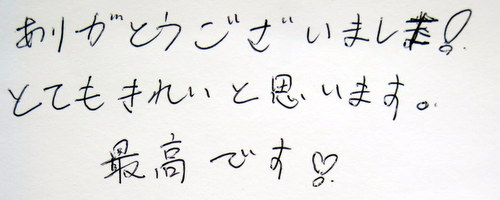 ありがとうございました!
とてもきれいと思います。
最高です♡